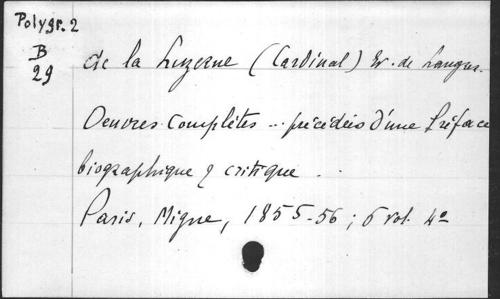 Polygr. 2
B
29
de la Luzerne (Cardinal) Ev. de Langres.
Oeuvres complètes ... précédées d'une Préface
biographique & critique ...
Paris, Migne, 1855-56 ; 6 vol. 4º